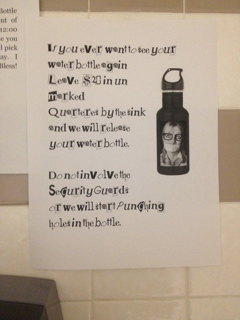 Bottle
nt of
12:00
e you
l pick
ay. I
Bless!
If you ever want to see your
water bottle again
Leave $20 in un
marked
Quarteres by the sink
and we will release
your water bottle.
Do not involve the
Security Guards
or we will start Punching
holes in the bottle.